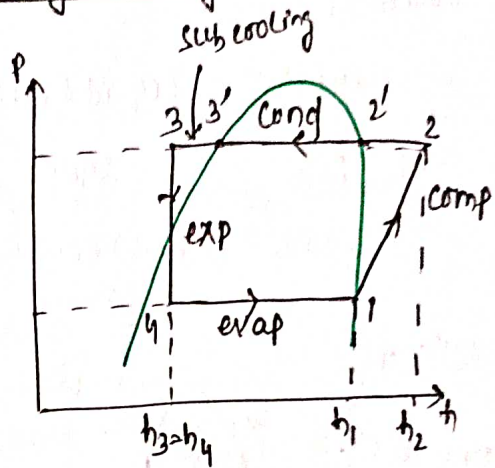 subcooling
P
3 3' cond 2' 2
exp
comp
4 evap 1
h
h3=h4 h1 h2